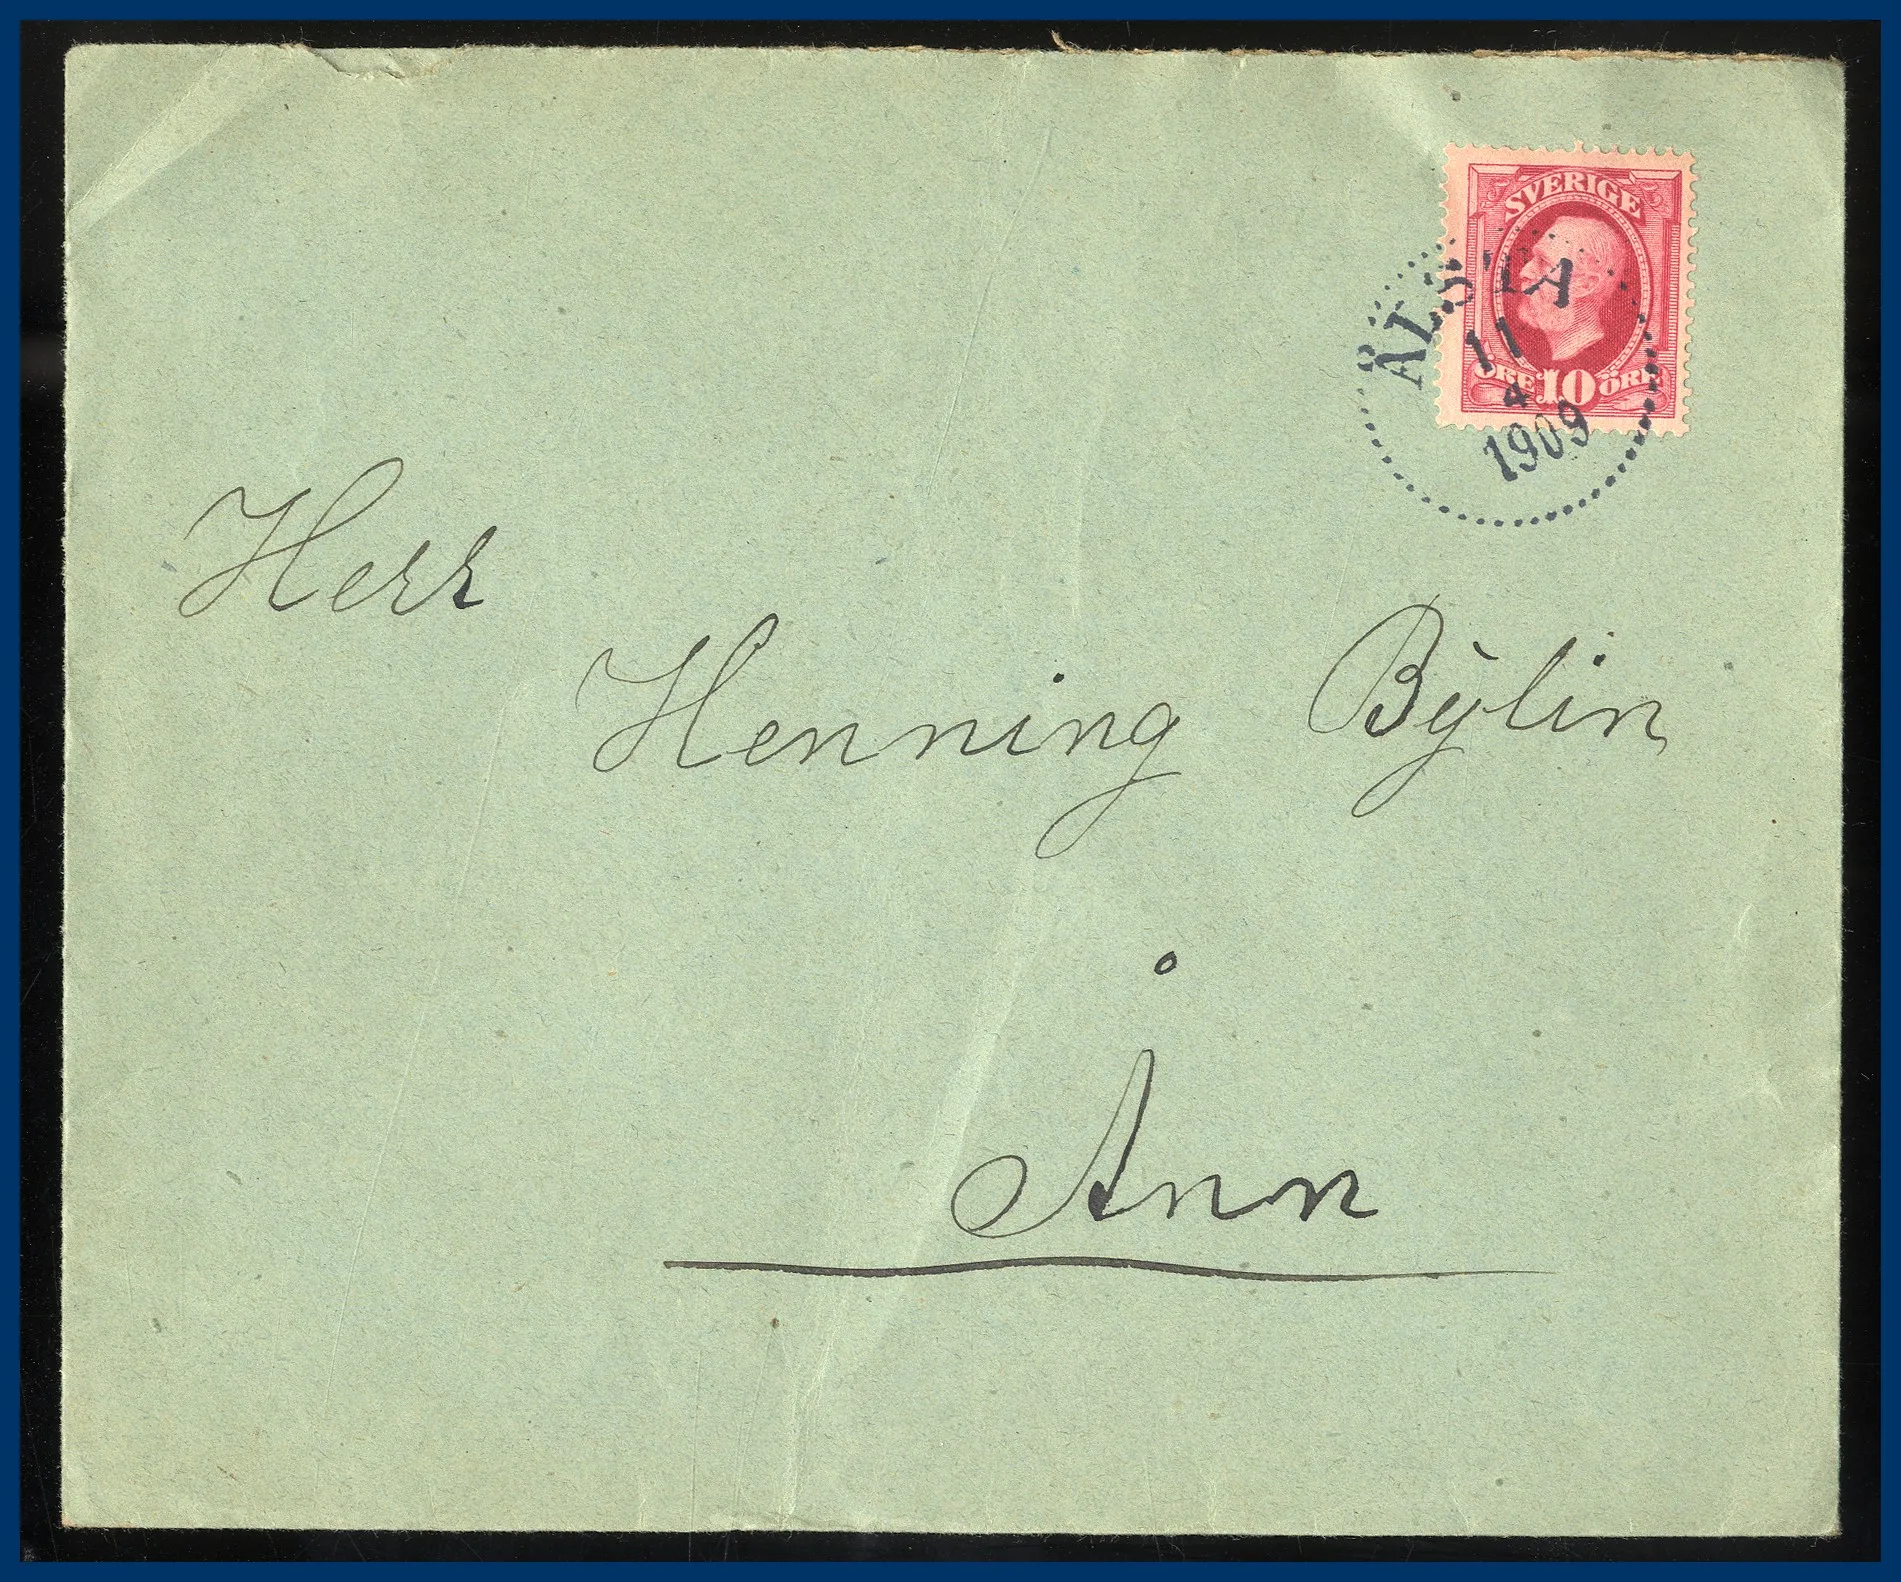 SVERIGE
ÖRE 10 ÖRE
ÅLSTA
11
4
1909
Herr
Henning Bylin
Ånn